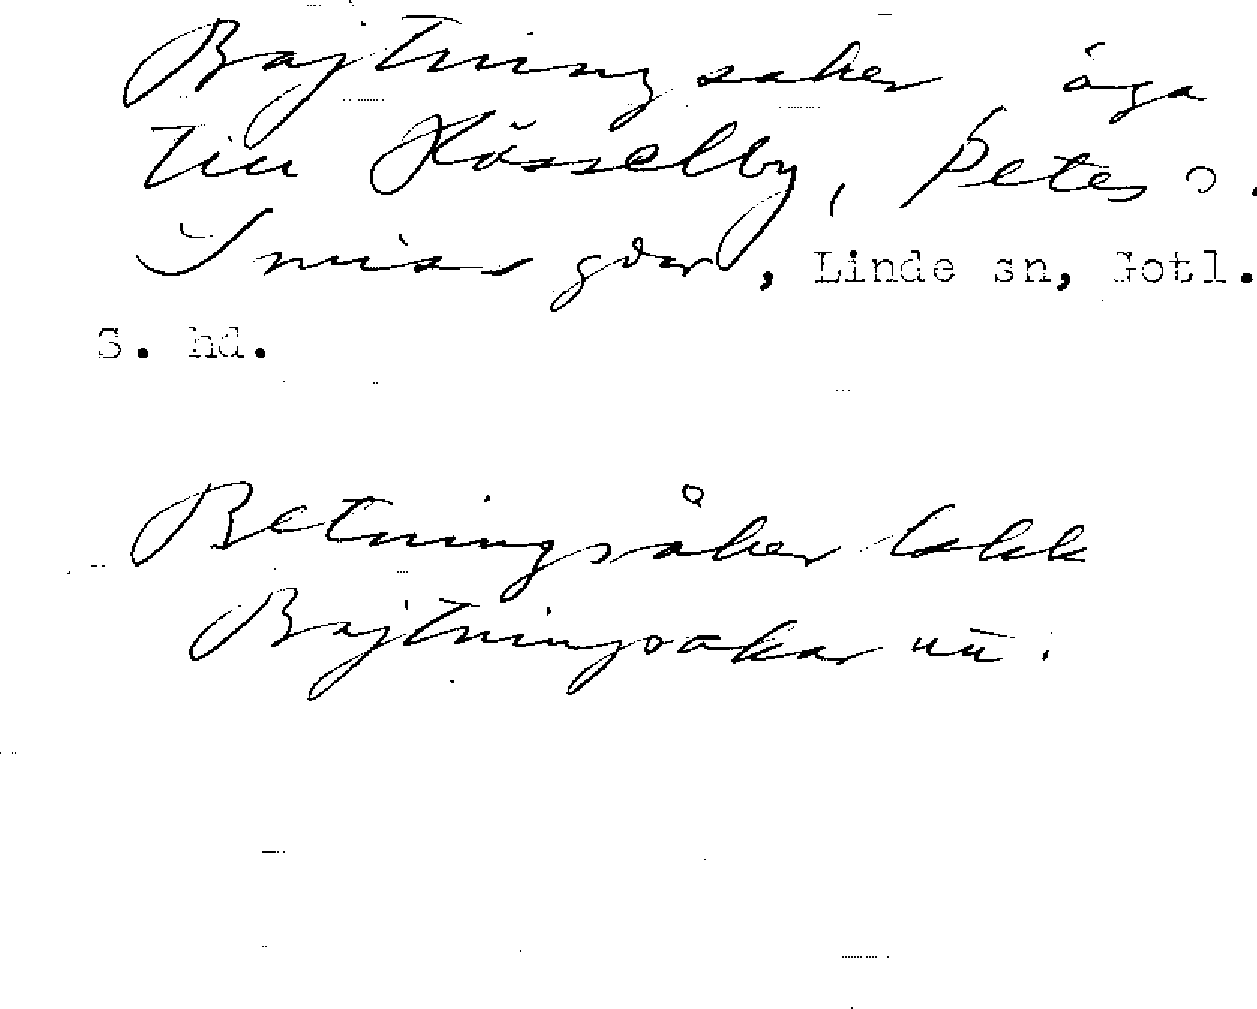 Bajtningsaker äga
till Hässelby, Petes o.
Smissgdar, Linde sn, Gotl.
S. hd.
Betningsåker
Bajtningsakar